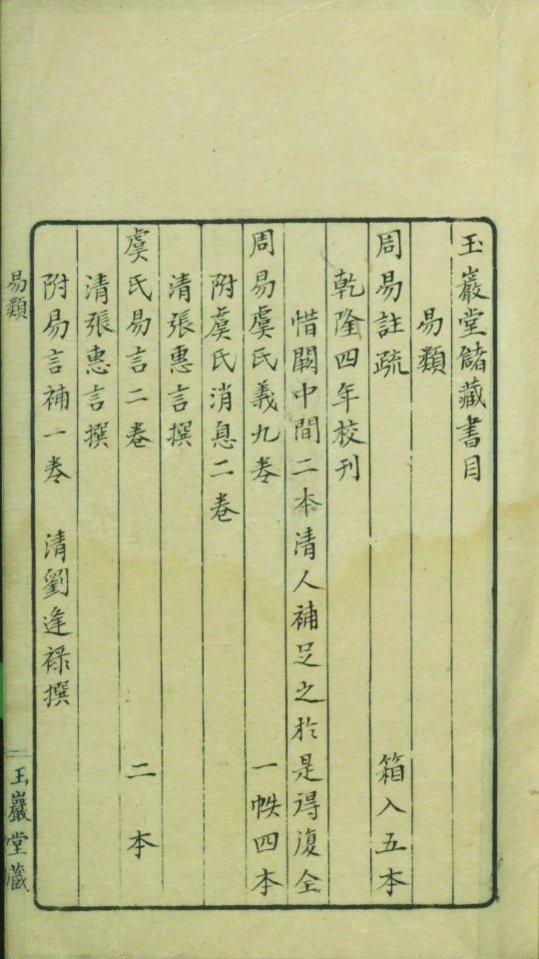 玉巖堂儲藏書目
易類
周易註疏 箱入五本
乾隆四年校刊
惜闕中間二本清人補足之於是得復全
周易虞氏義九卷 一帙四本
附虞氏消息二卷
清張惠言撰
虞氏易言二卷 二本
清張惠言撰
附易言補一卷 清劉逢祿撰
易類
玉巖堂藏